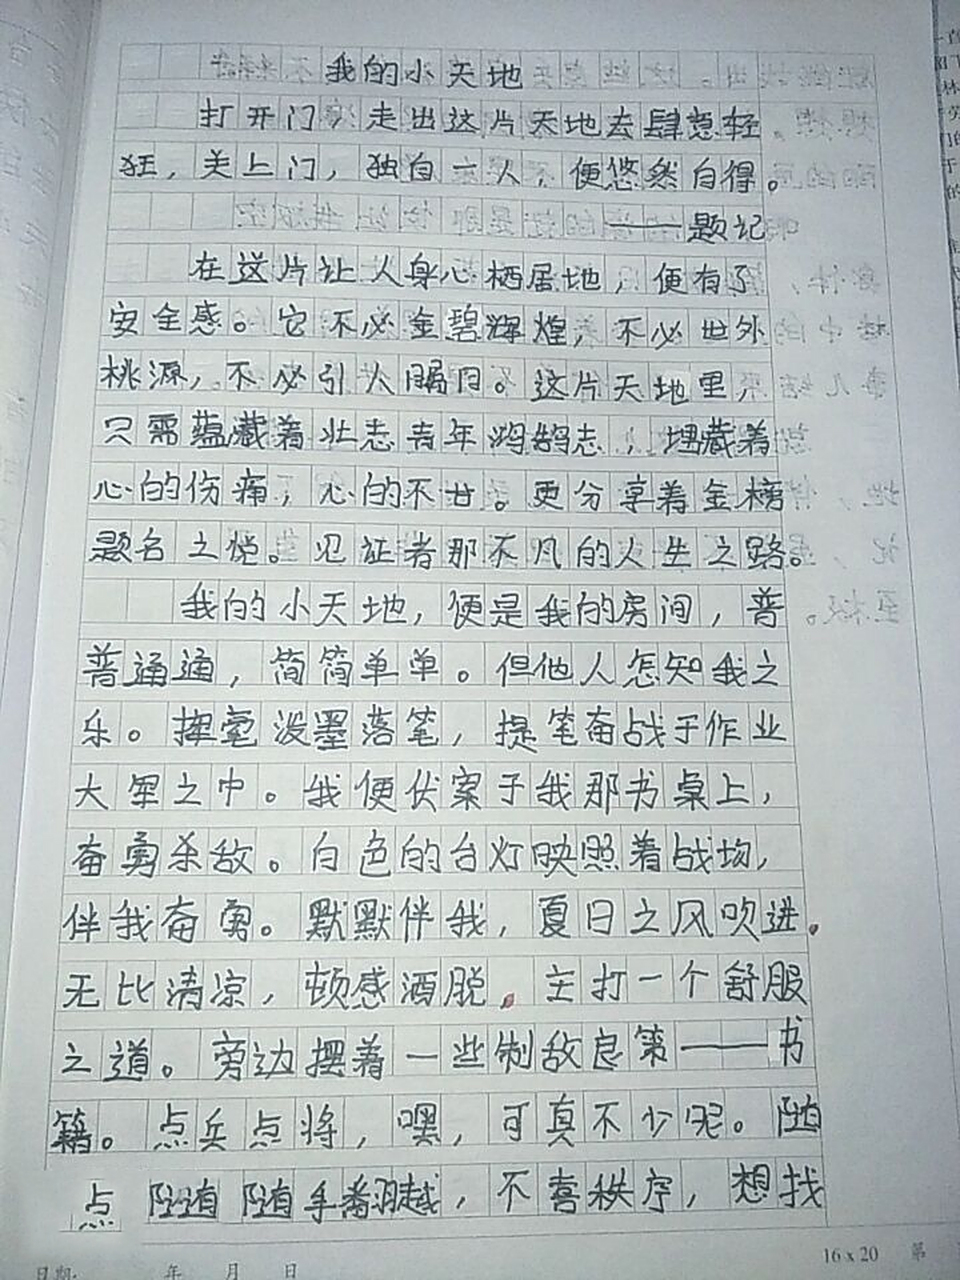 我的小天地
打开门，走出这片天地去肆意轻
狂，关上门，独自一人，便悠然自得。
——题记
在这片让人身心栖居地，便有了
安全感。它不必金碧辉煌，不必世外
桃源，不必引人瞩目。这片天地里，
只需蕴藏着壮志青年鸿鹄志，埋藏着
心的伤痛，心的不甘。更分享着金榜
题名之悦。见证者那不凡的人生之路。
我的小天地，便是我的房间，普
普通通，简简单单。但他人怎知我之
乐。挥毫泼墨落笔，提笔奋战于作业
大军之中。我便伏案于我那书桌上，
奋勇杀敌。白色的台灯映照着战场，
伴我奋勇。默默伴我，夏日之风吹进。
无比清凉，顿感洒脱。主打一个舒服
之道。旁边摆着一些制敌良策——书
籍。点兵点将，嘿，可真不少呢。
点 手 ，不喜秩序，想找
16x20 第
日期: 年 月 日